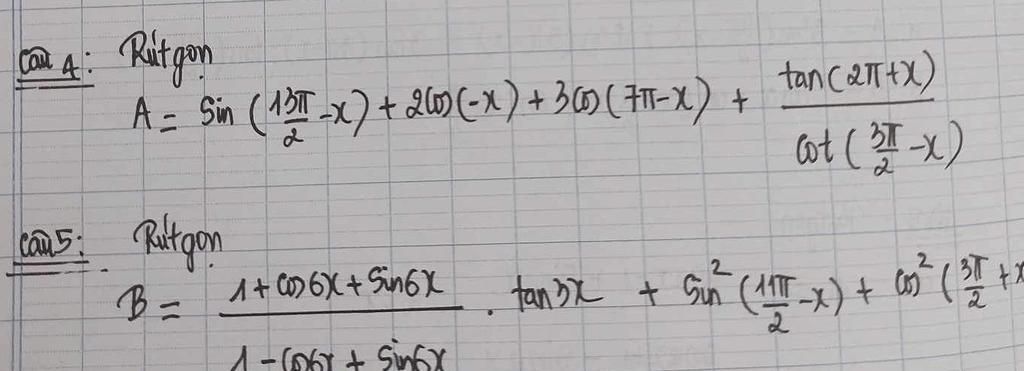 Câu 4: Rút gọn
A = sin (13π/2 - x) + 2cos(-x) + 3cos(7π - x) + tan(2π + x) / cot(3π/2 - x)
Câu 5: Rút gọn
B = 1 + cos6x + sin6x / 1 - cos6x + sin6x . tan3x + sin² (11π/2 - x) + cos² (3π/2 + x